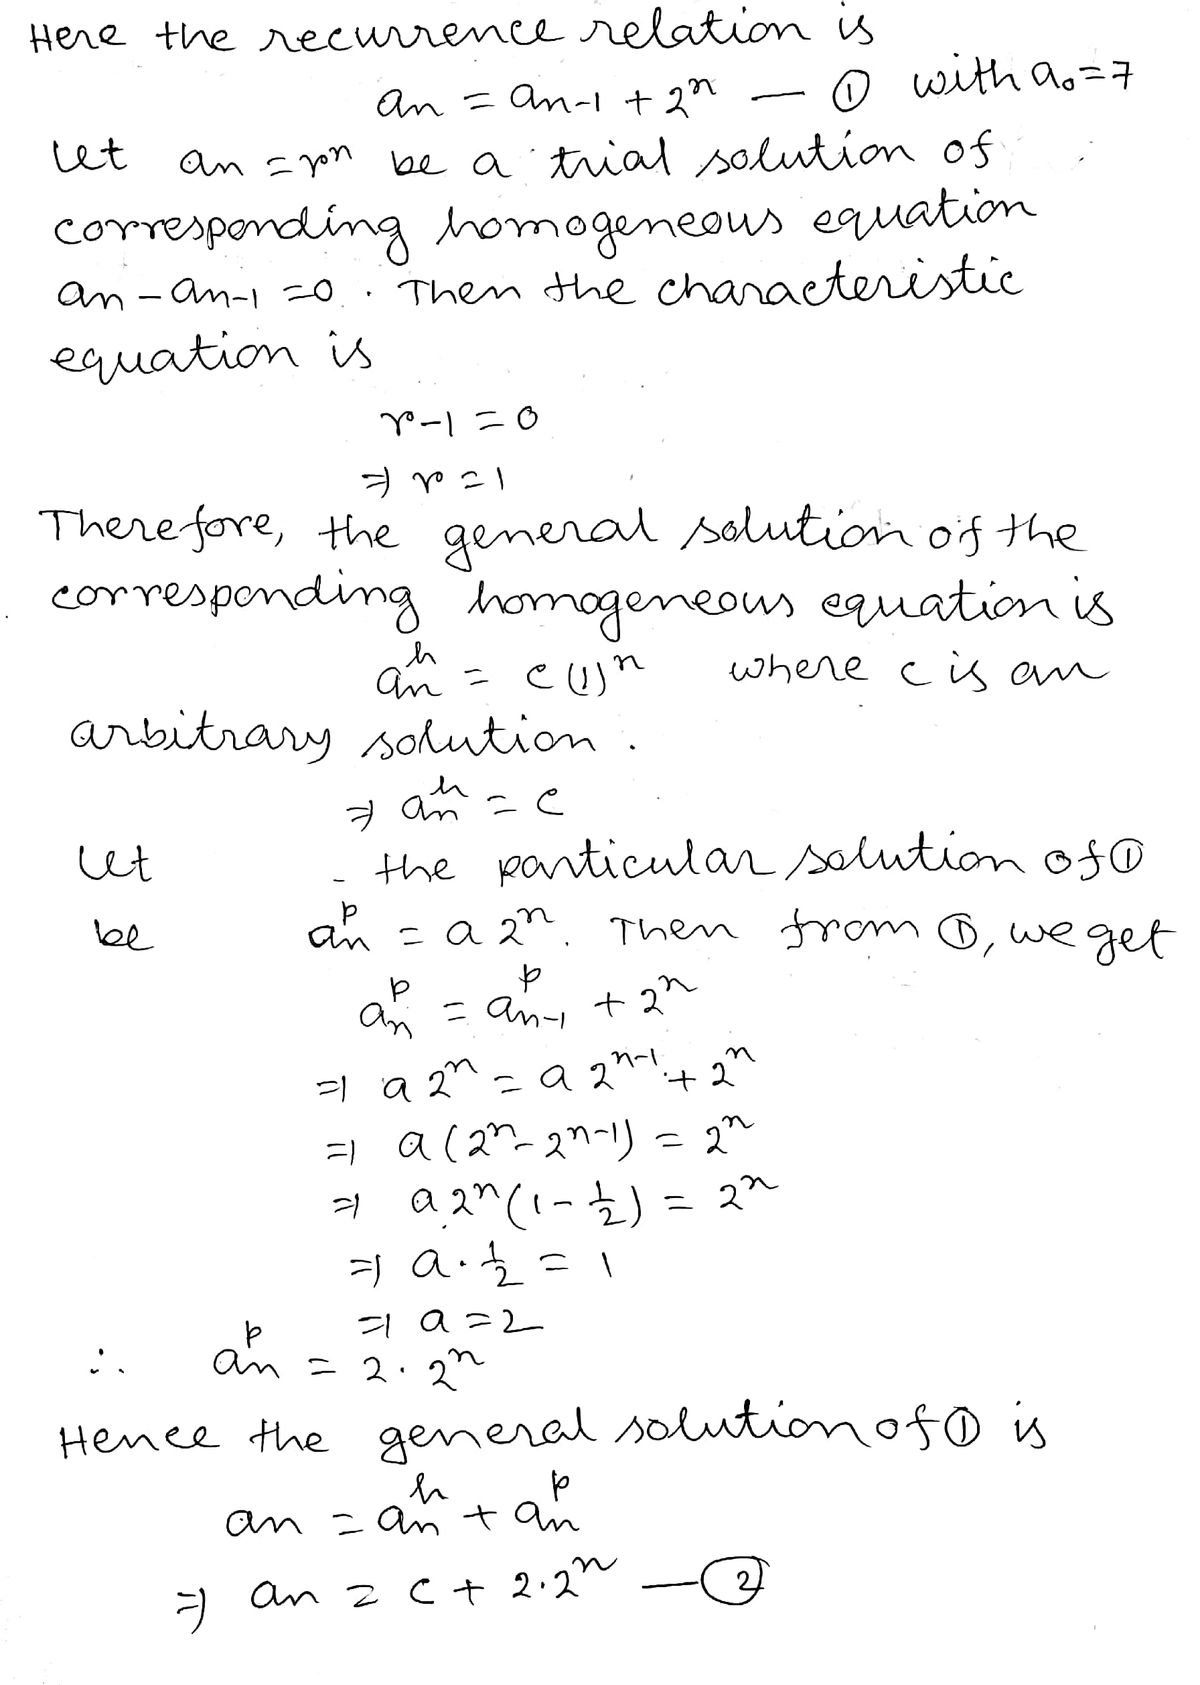 Here the recurrence relation is
an = an-1 + 2ⁿ — ① with a₀=7
Let an = rⁿ be a trial solution of
corresponding homogeneous equation
an - an-1 = 0. Then the characteristic
equation is
r-1 = 0
⇒ r = 1
Therefore, the general solution of the
corresponding homogeneous equation is
anʰ = c(1)ⁿ where c is an
arbitrary solution.
⇒ anʰ = c
Let - the particular solution of ①
be anᵖ = a 2ⁿ. Then from ①, we get
anᵖ = an-1ᵖ + 2ⁿ
⇒ a 2ⁿ = a 2ⁿ⁻¹ + 2ⁿ
⇒ a(2ⁿ - 2ⁿ⁻¹) = 2ⁿ
⇒ a 2ⁿ(1 - 1/2) = 2ⁿ
⇒ a · 1/2 = 1
⇒ a = 2
∴ anᵖ = 2 · 2ⁿ
Hence the general solution of ① is
an = anʰ + anᵖ
⇒ an = c + 2·2ⁿ — ②